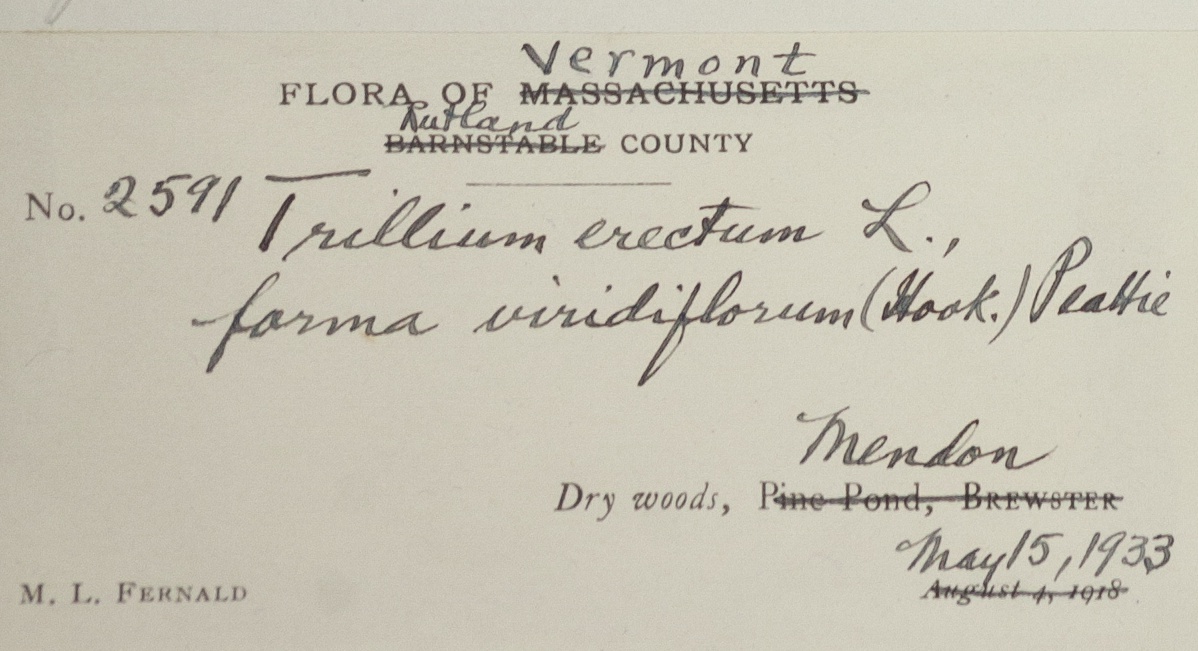 Vermont
FLORA OF MASSACHUSETTS
Rutland
BARNSTABLE COUNTY
No. 2591 Trillium erectum L.,
forma viridiflorum (Hook.) Peattie
Mendon
Dry woods, Pine Pond, BREWSTER
May 15, 1933
August 4, 1918
M. L. FERNALD